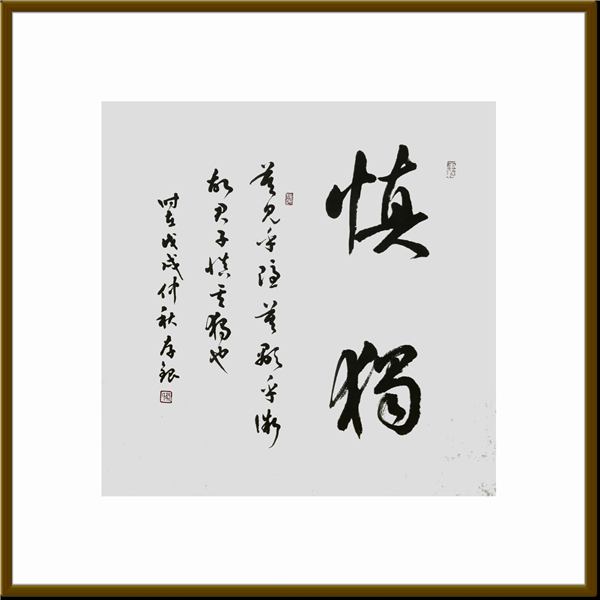 慎獨
莫見乎隱莫顯乎微
故君子慎其獨也
时在戊戌仲秋存銀